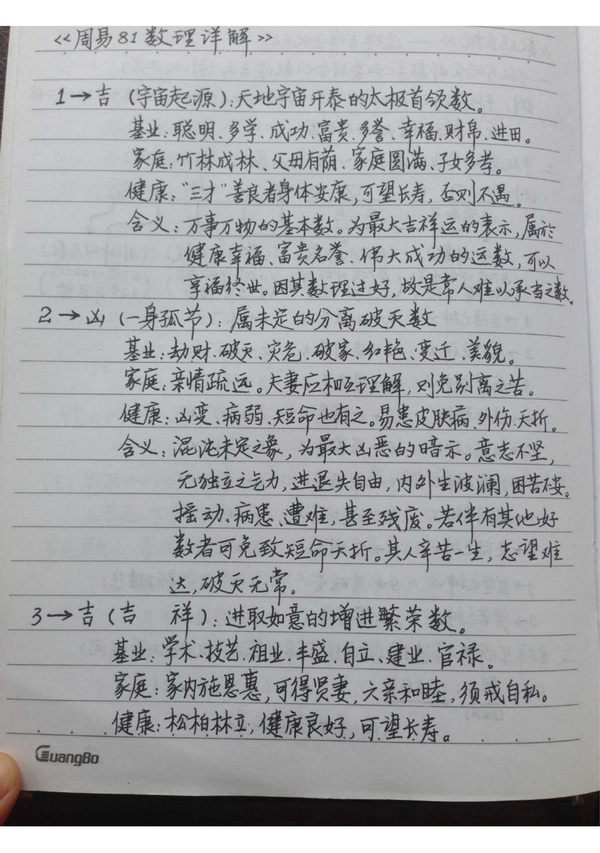 《周易81数理详解》
1→吉(宇宙起源):天地宇宙开泰的太极首领数。
基业:聪明、多学、成功、富贵、多誉、幸福、财帛、进田。
家庭:竹林成林、父母有荫、家庭圆满、子女多孝。
健康:“三才”善良者身体安康,可望长寿,否则不遇。
含义:万事万物的基本数。为最大吉祥运的表示,属於
健康幸福、富贵名誉、伟大成功的运数,可以
享福终世。因其数理过好,故是常人难以承当之数。
2→凶(一身孤节):属未定的分离破灭数
基业:劫财、破灭、灾危、破家、红艳、变迁、美貌。
家庭:亲情疏远。夫妻应相互理解,则免别离之苦。
健康:凶变、病弱、短命也有之。易患皮肤病、外伤、夭折。
含义:混沌未定之象,为最大凶恶的暗示。意志不坚,
无独立之气力,进退失自由,内外生波澜,困苦不安。
摇动、病患、遭难,甚至残废。若伴有其他好
数者可免致短命夭折。其人辛苦一生,志望难
达,破灭无常。
3→吉(吉 祥):进取如意的增进繁荣数。
基业:学术、技艺、祖业、丰盛、自立、建业、官禄。
家庭:家内施恩惠,可得贤妻,六亲和睦,须戒自私。
健康:松柏林立,健康良好,可望长寿。
GuangBo